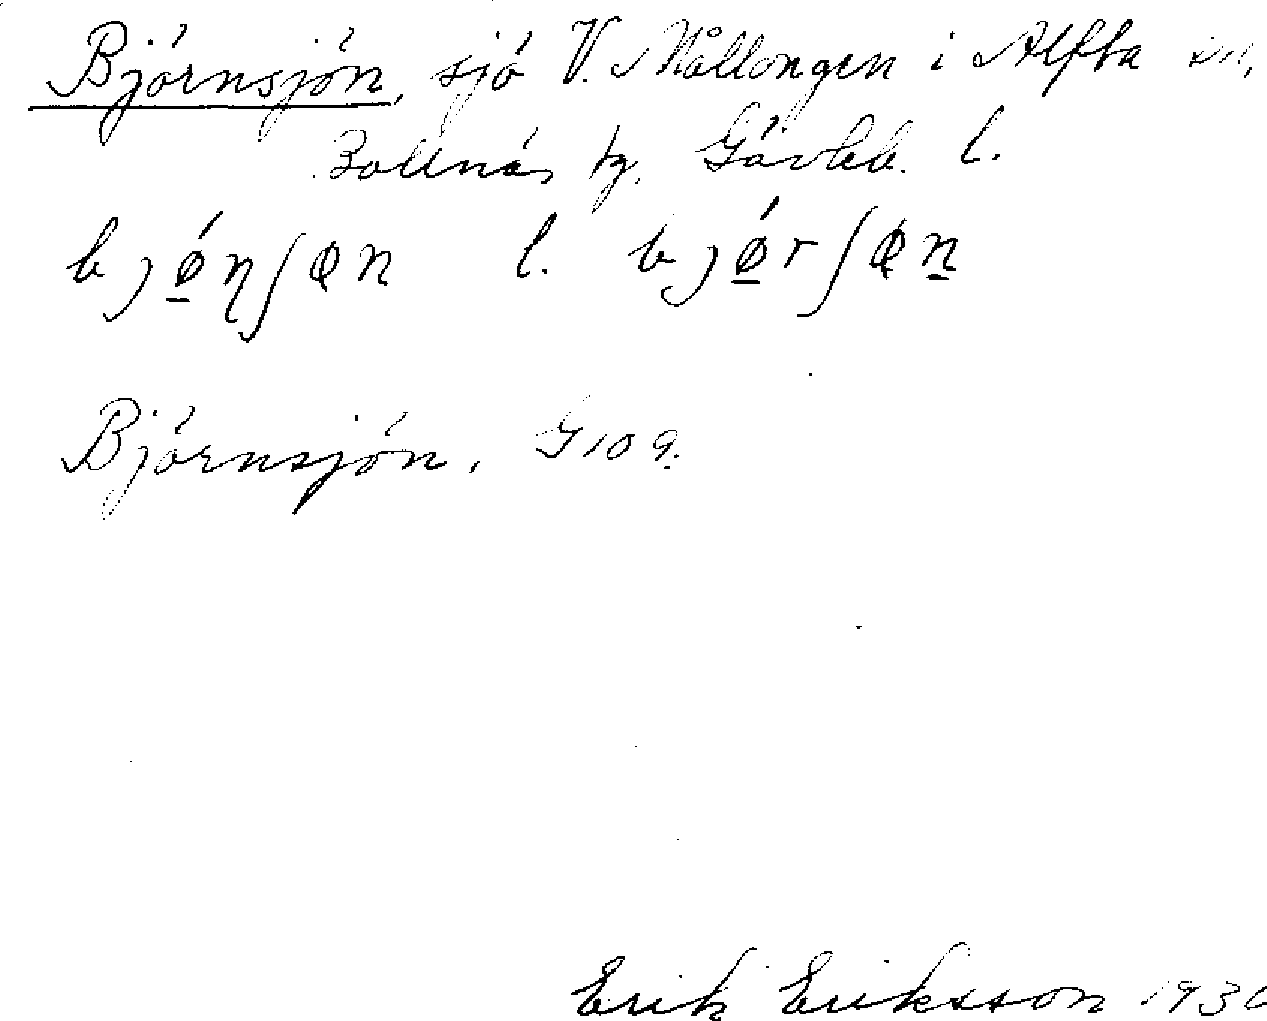 Björnsjön, sjö V. Mållongen i Alfta sn,
Bollnäs tg. Gävleb. l.
bjǿ̲ɳʃꬾn l. bjǿ̲rʃꬾn̲
Björnsjön, G 109.
Erik Eriksson 193